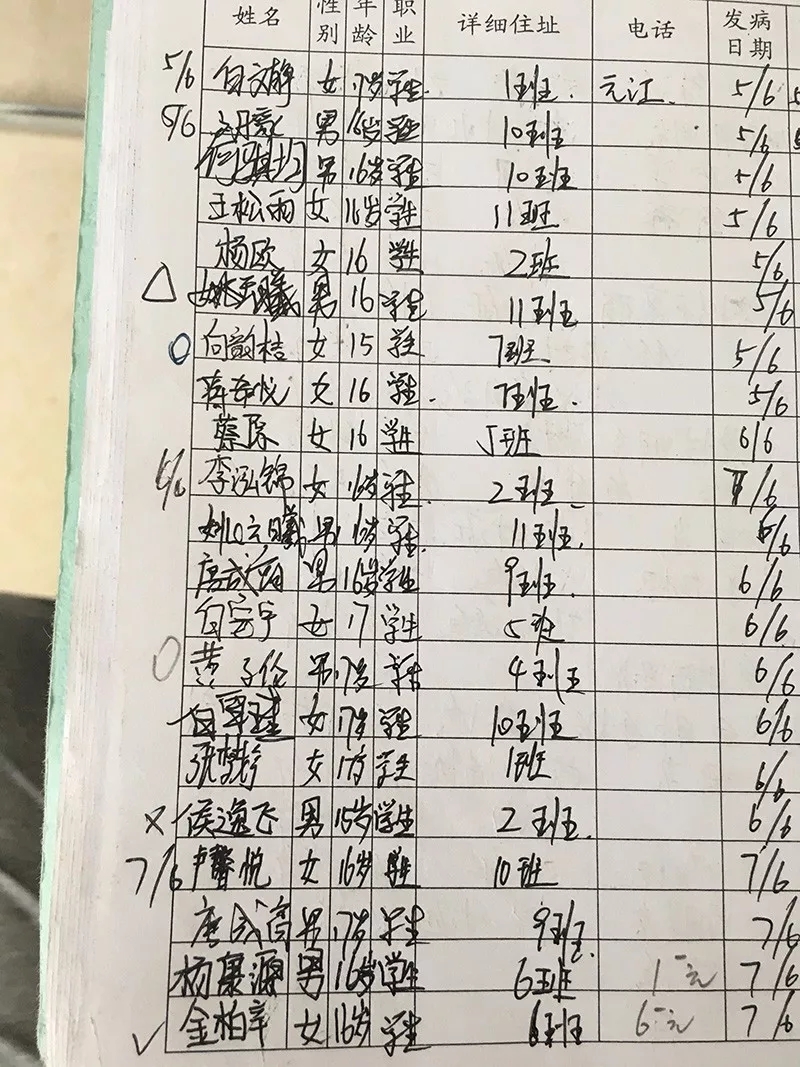 姓名 性别 年龄 职业 详细住址 电话 发病日期
5/6 白文静 女 17岁 学生 1班 元江 5/6
5/6 男 16岁 学生 10班 5/6
男 16岁 学生 10班 5/6
王松雨 女 16岁 学生 11班 5/6
杨欧 女 16 学生 2班 5/6
△ 男 16 学生 11班 5/6
向韵桔 女 15 学生 7班 5/6
蒋希悦 女 16 学生 7班 5/6
蔡 女 16 学生 5班 6/6
李泓锦 女 16岁 学生 2班 /6
男 16岁 学生 11班 /6
唐成 男 16岁 学生 9班 6/6
白宇 女 17 学生 5班 6/6
黄子伦 男 17岁 学生 4班 6/6
白 女 17岁 学生 10班 6/6
张 女 17岁 学生 1班 6/6
× 侯逸飞 男 15岁 学生 2班 6/6
7/6 卢馨悦 女 16岁 学生 10班 7/6
唐成 男 17岁 学生 9班 7/6
杨康源 男 16岁 学生 6班 7/6
✓ 金柏辛 女 16岁 学生 6班 7/6